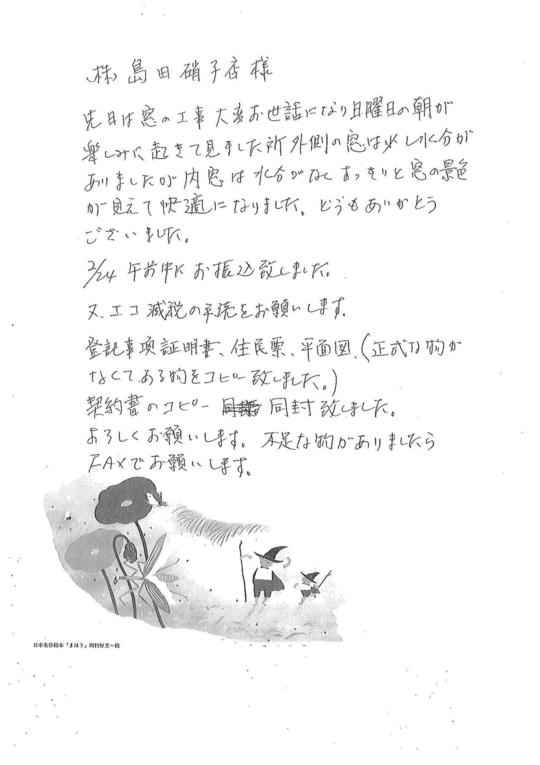 (株)島田硝子店様
先日は窓の工事大変お世話になり日曜日の朝が
楽しみに起きて見ました所外側の窓は少し水分が
ありましたが内窓は水分がなくすっきりと窓の景色
が見えて快適になりました。どうもありがとう
ございました。
2/24 午前中にお振込致しました。
又、エコ減税の手続をお願いします。
登記事項証明書、住民票、平面図、(正式な物が
なくてある物をコピー致しました。)
契約書のコピー 同封致しました。
よろしくお願いします。不足な物がありましたら
FAXでお願いします。
日本名作絵本「まほう」岡村好文=絵